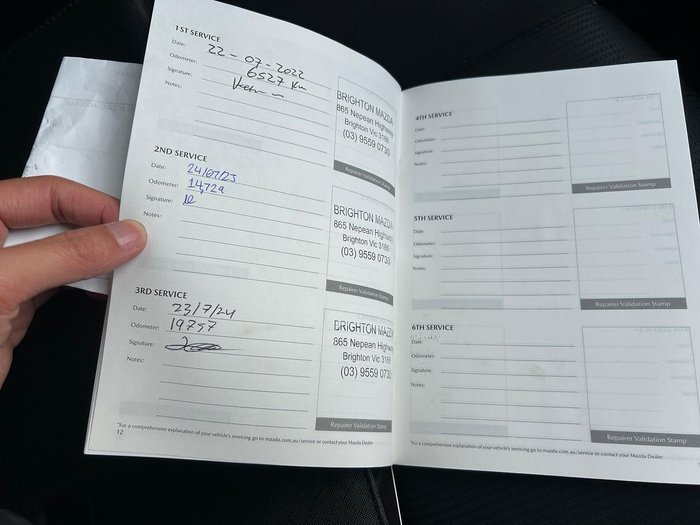 1ST SERVICE
Date: 22-07-2022
Odometer: 6527 Km
Signature:
Notes:
BRIGHTON MAZDA
865 Nepean Highway
Brighton Vic 3186
(03) 9559 0730
Repairer Validation Stamp
2ND SERVICE
Date: 24/07/23
Odometer: 14,729
Signature:
Notes:
BRIGHTON MAZDA
865 Nepean Highway
Brighton Vic 3186
(03) 9559 0730
Repairer Validation Stamp
3RD SERVICE
Date: 23/7/24
Odometer: 19757
Signature:
Notes:
BRIGHTON MAZDA
865 Nepean Highway
Brighton Vic 3186
(03) 9559 0730
Repairer Validation Stamp
*For a comprehensive explanation of your vehicle's servicing go to mazda.com.au/service or contact your Mazda Dealer
12
4TH SERVICE
Date:
Odometer:
Signature:
Notes:
Repairer Validation Stamp
5TH SERVICE
Date:
Odometer:
Signature:
Notes:
Repairer Validation Stamp
6TH SERVICE
Date:
Odometer:
Signature:
Notes:
Repairer Validation Stamp
*For a comprehensive explanation of your vehicle's servicing go to mazda.com.au/service or contact your Mazda Dealer